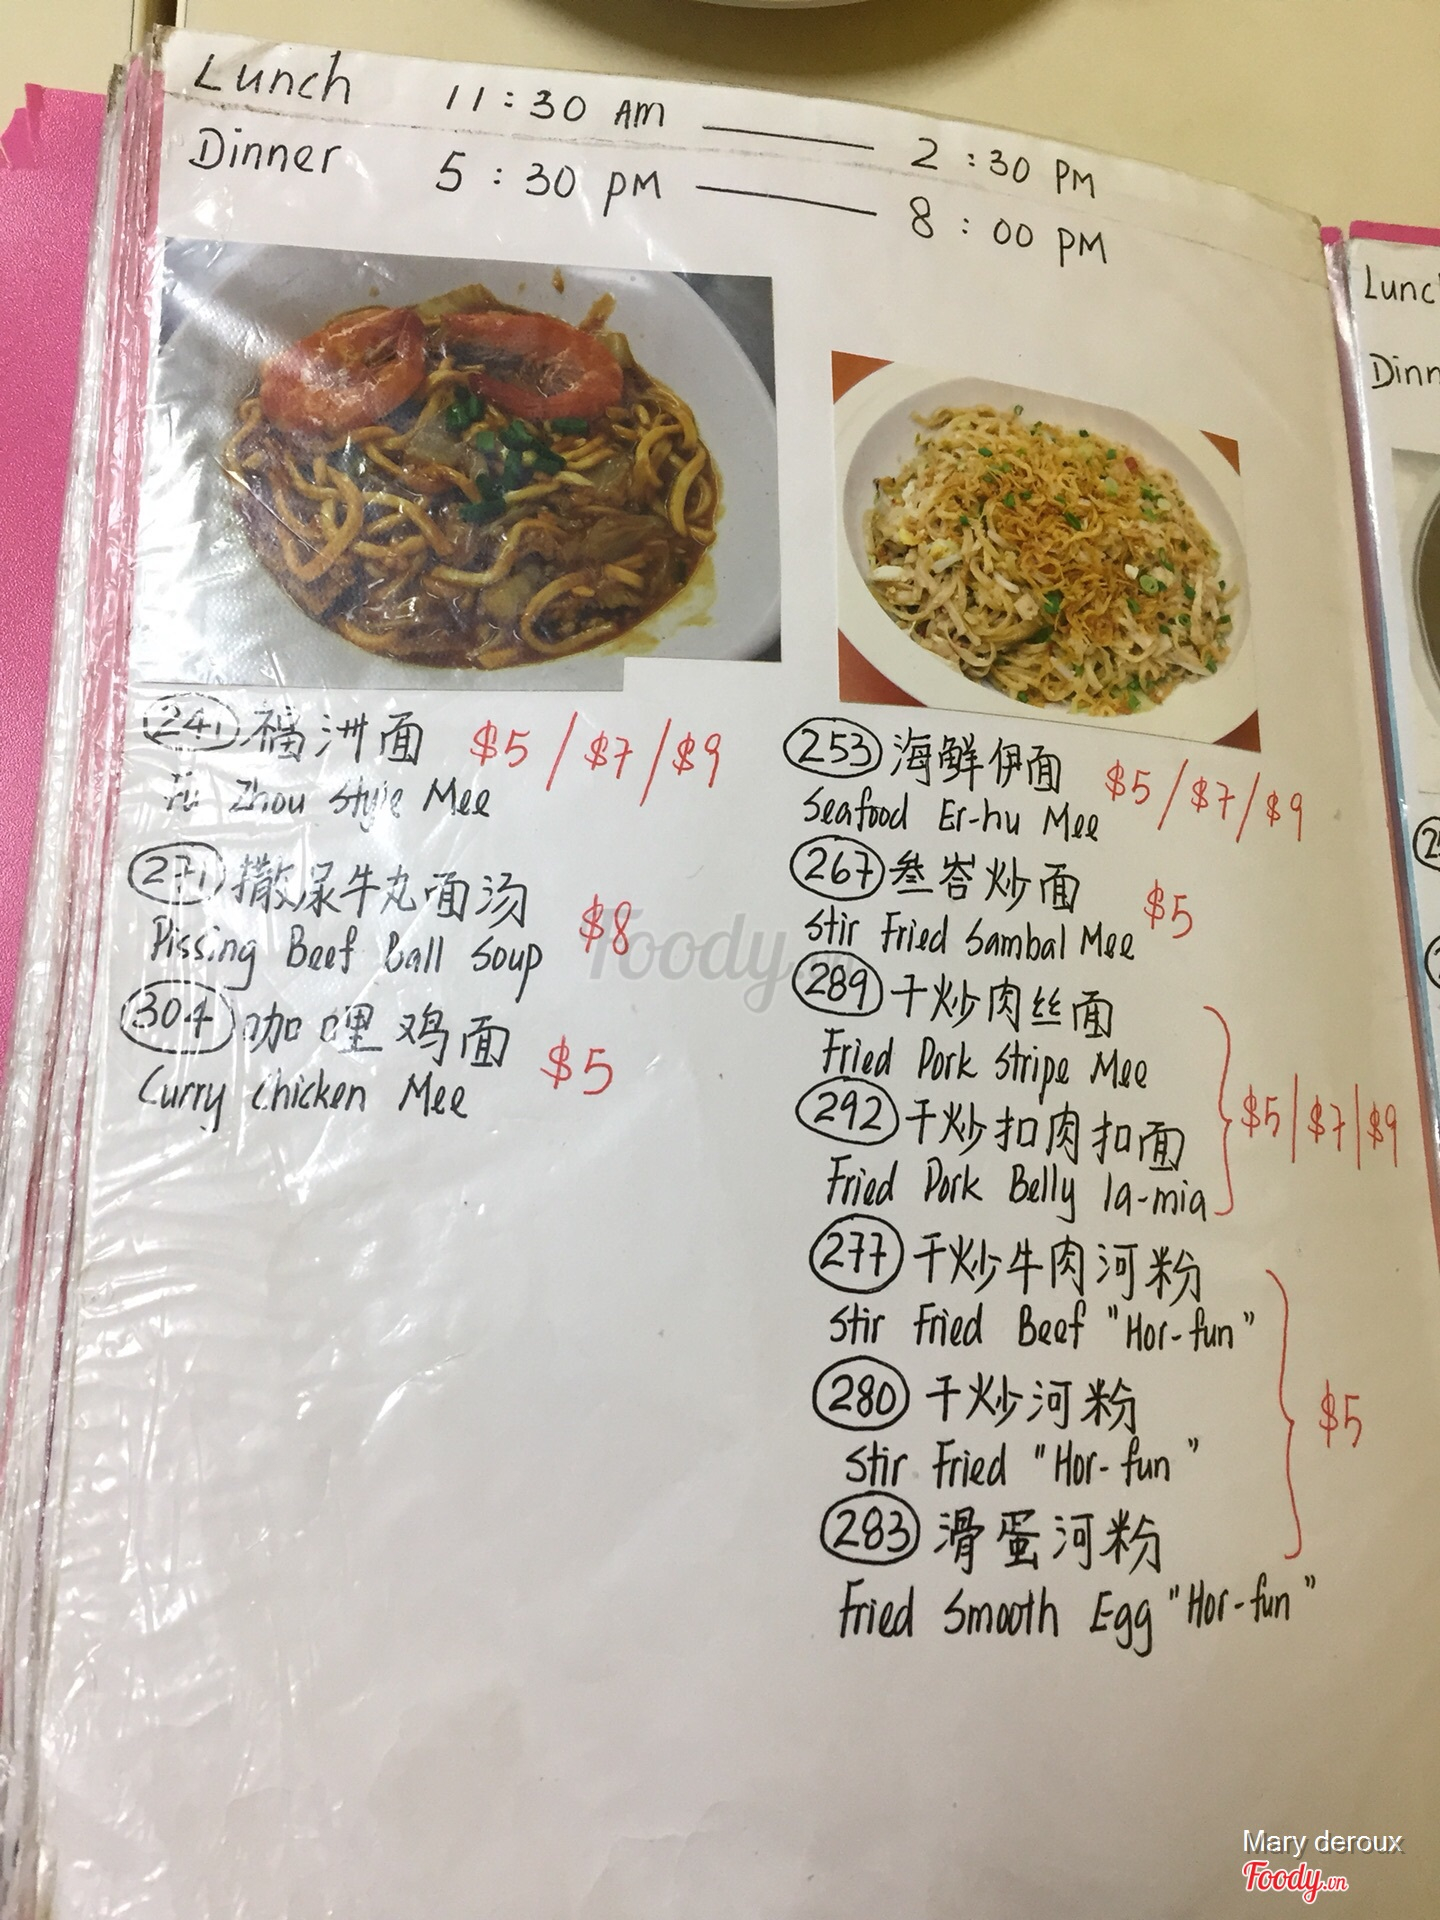 Lunch 11:30 AM — 2:30 PM
Dinner 5:30 PM — 8:00 PM
241 福洲面 $5/$7/$9
Fu Zhou Style Mee
271 撒尿牛丸面汤 $8
Pissing Beef Ball Soup
304 咖哩鸡面 $5
Curry Chicken Mee
253 海鲜伊面 $5/$7/$9
Seafood Er-hu Mee
267 叁峇炒面 $5
Stir Fried Sambal Mee
289 干炒肉丝面
Fried Pork Stripe Mee
292 干炒扣肉扣面
Fried Pork Belly la-mia
$5|$7|$9
277 干炒牛肉河粉
Stir Fried Beef "Hor-fun"
280 干炒河粉
Stir Fried "Hor-fun"
283 滑蛋河粉
Fried Smooth Egg "Hor-fun"
$5
Lunc
Dinn
Foody.vn
Mary deroux
Foody.vn